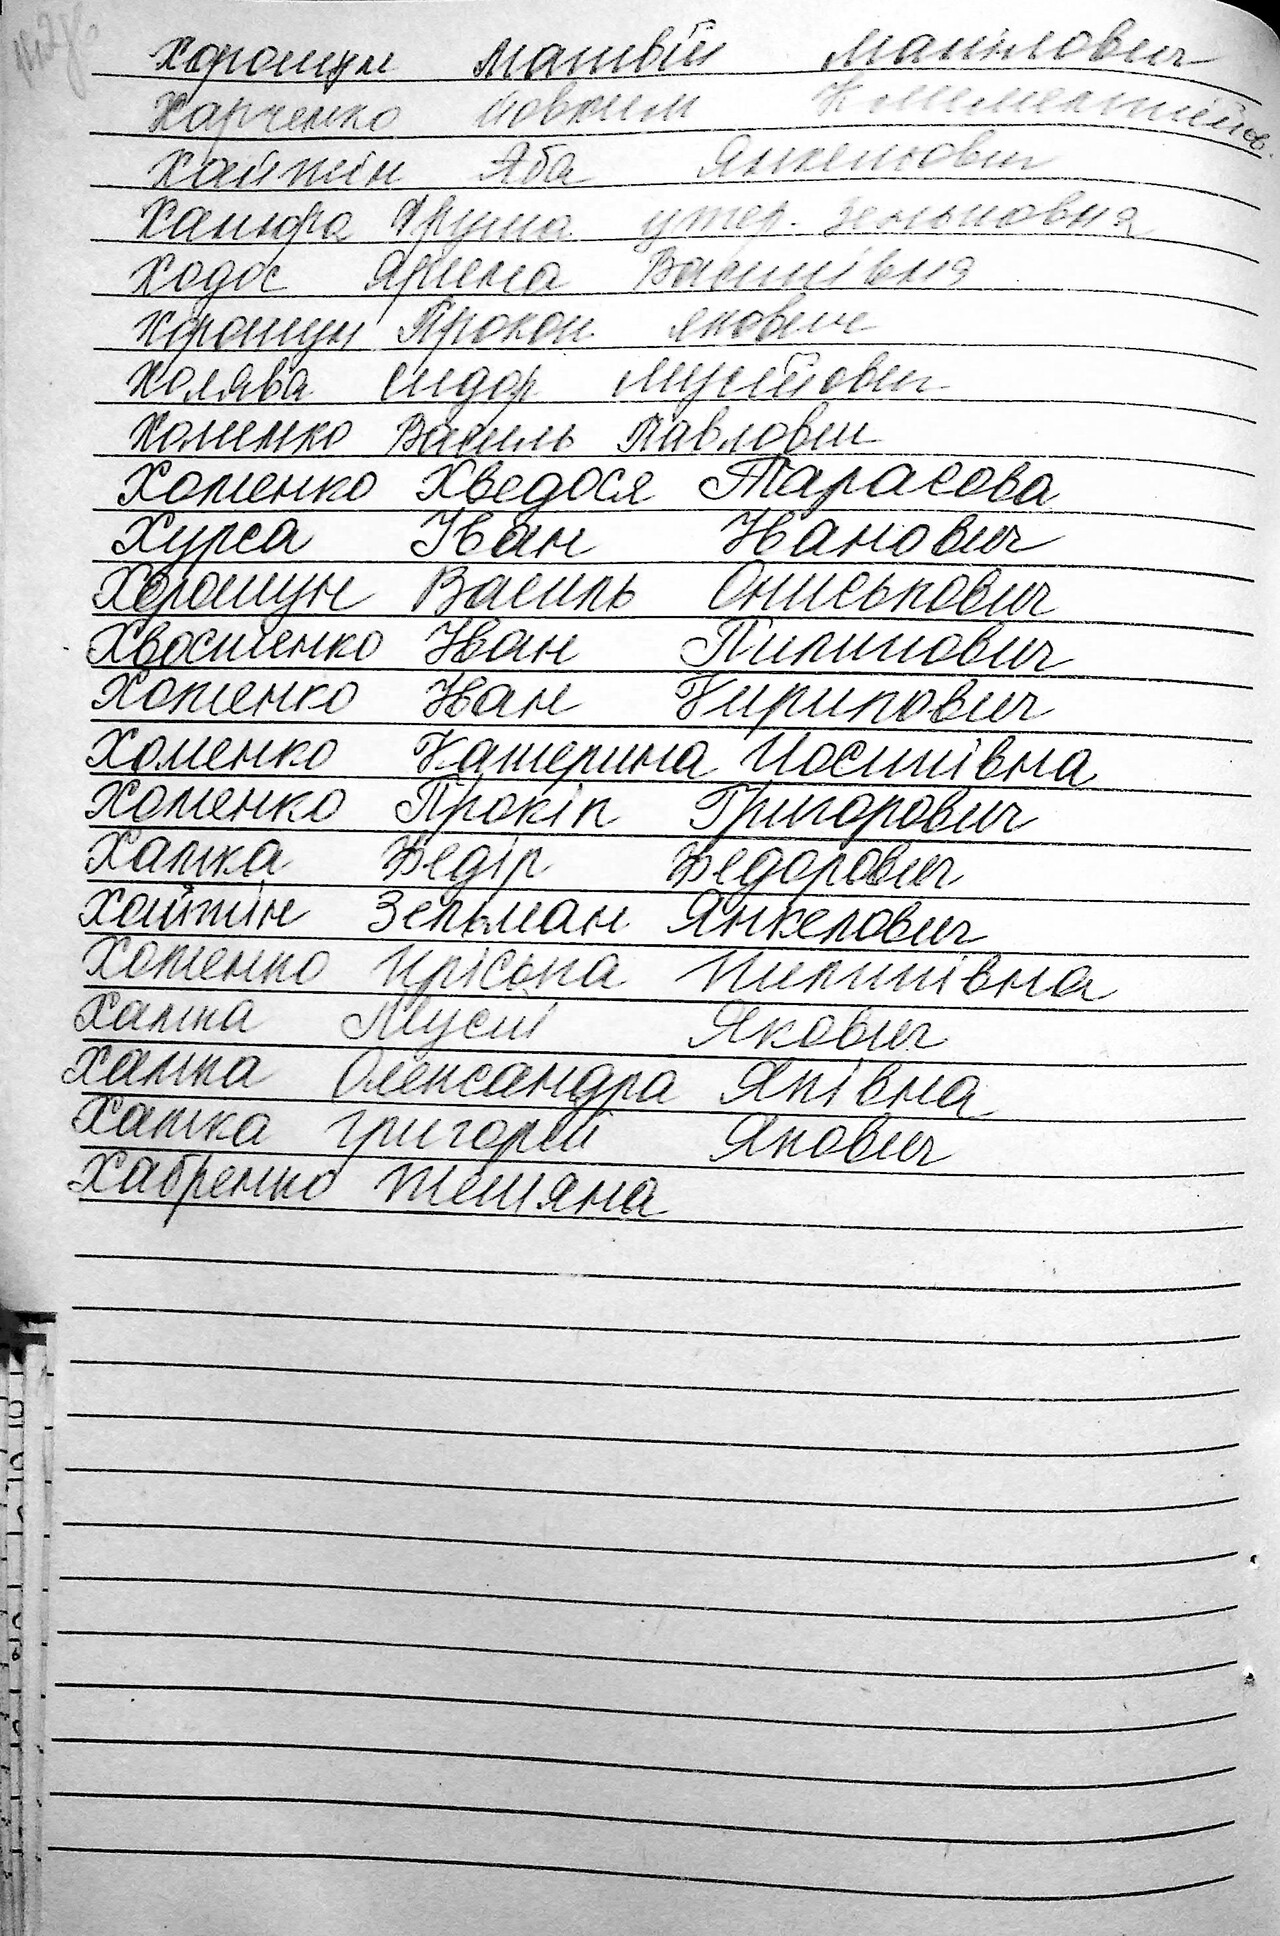 Хорошун Матвій Манілович
Харченко Йовхим Климентійов.
Хайтін Аба Янкельович
Ханюра Фрума утер. Зельмовна
Ходос Ярина Василівна
Хорошун Прокоп Якович
Холява Сидор Мусійович
Хоменко Василь Павлович
Хоменко Хведося Тарасова
Хурса Іван Іванович
Хорошун Василь Ониськович
Хвостенко Іван Пилипович
Хоменко Іван Кирилович
Хоменко Катерина Йосипівна
Хоменко Прокіп Григорович
Хапка Федір Федорович
Хайтін Зельман Янкелович
Хоменко Пріська Пилипівна
Хапка Мусій Якович
Хапка Олександра Яківна
Хапка Григорій Якович
Хабренко Тетяна